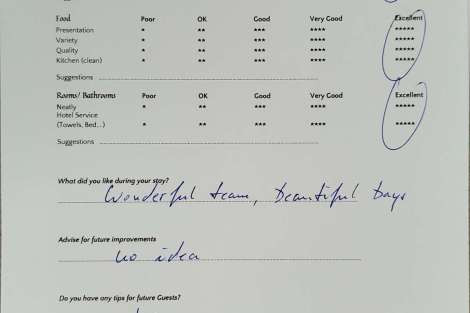 Food Poor OK Good Very Good Excellent
Presentation * *** *** **** *****
Variety * *** *** **** *****
Quality * *** *** **** *****
Kitchen (clean) * *** *** **** *****
Suggestions
Rooms/ Bathrooms Poor OK Good Very Good Excellent
Neatly * ** *** **** *****
Hotel Service
(Towels, Bed...) * ** *** **** *****
Suggestions
What did you like during your stay?
Wonderful team, beautiful days
Advise for future improvements
no idea
Do you have any tips for future Guests?